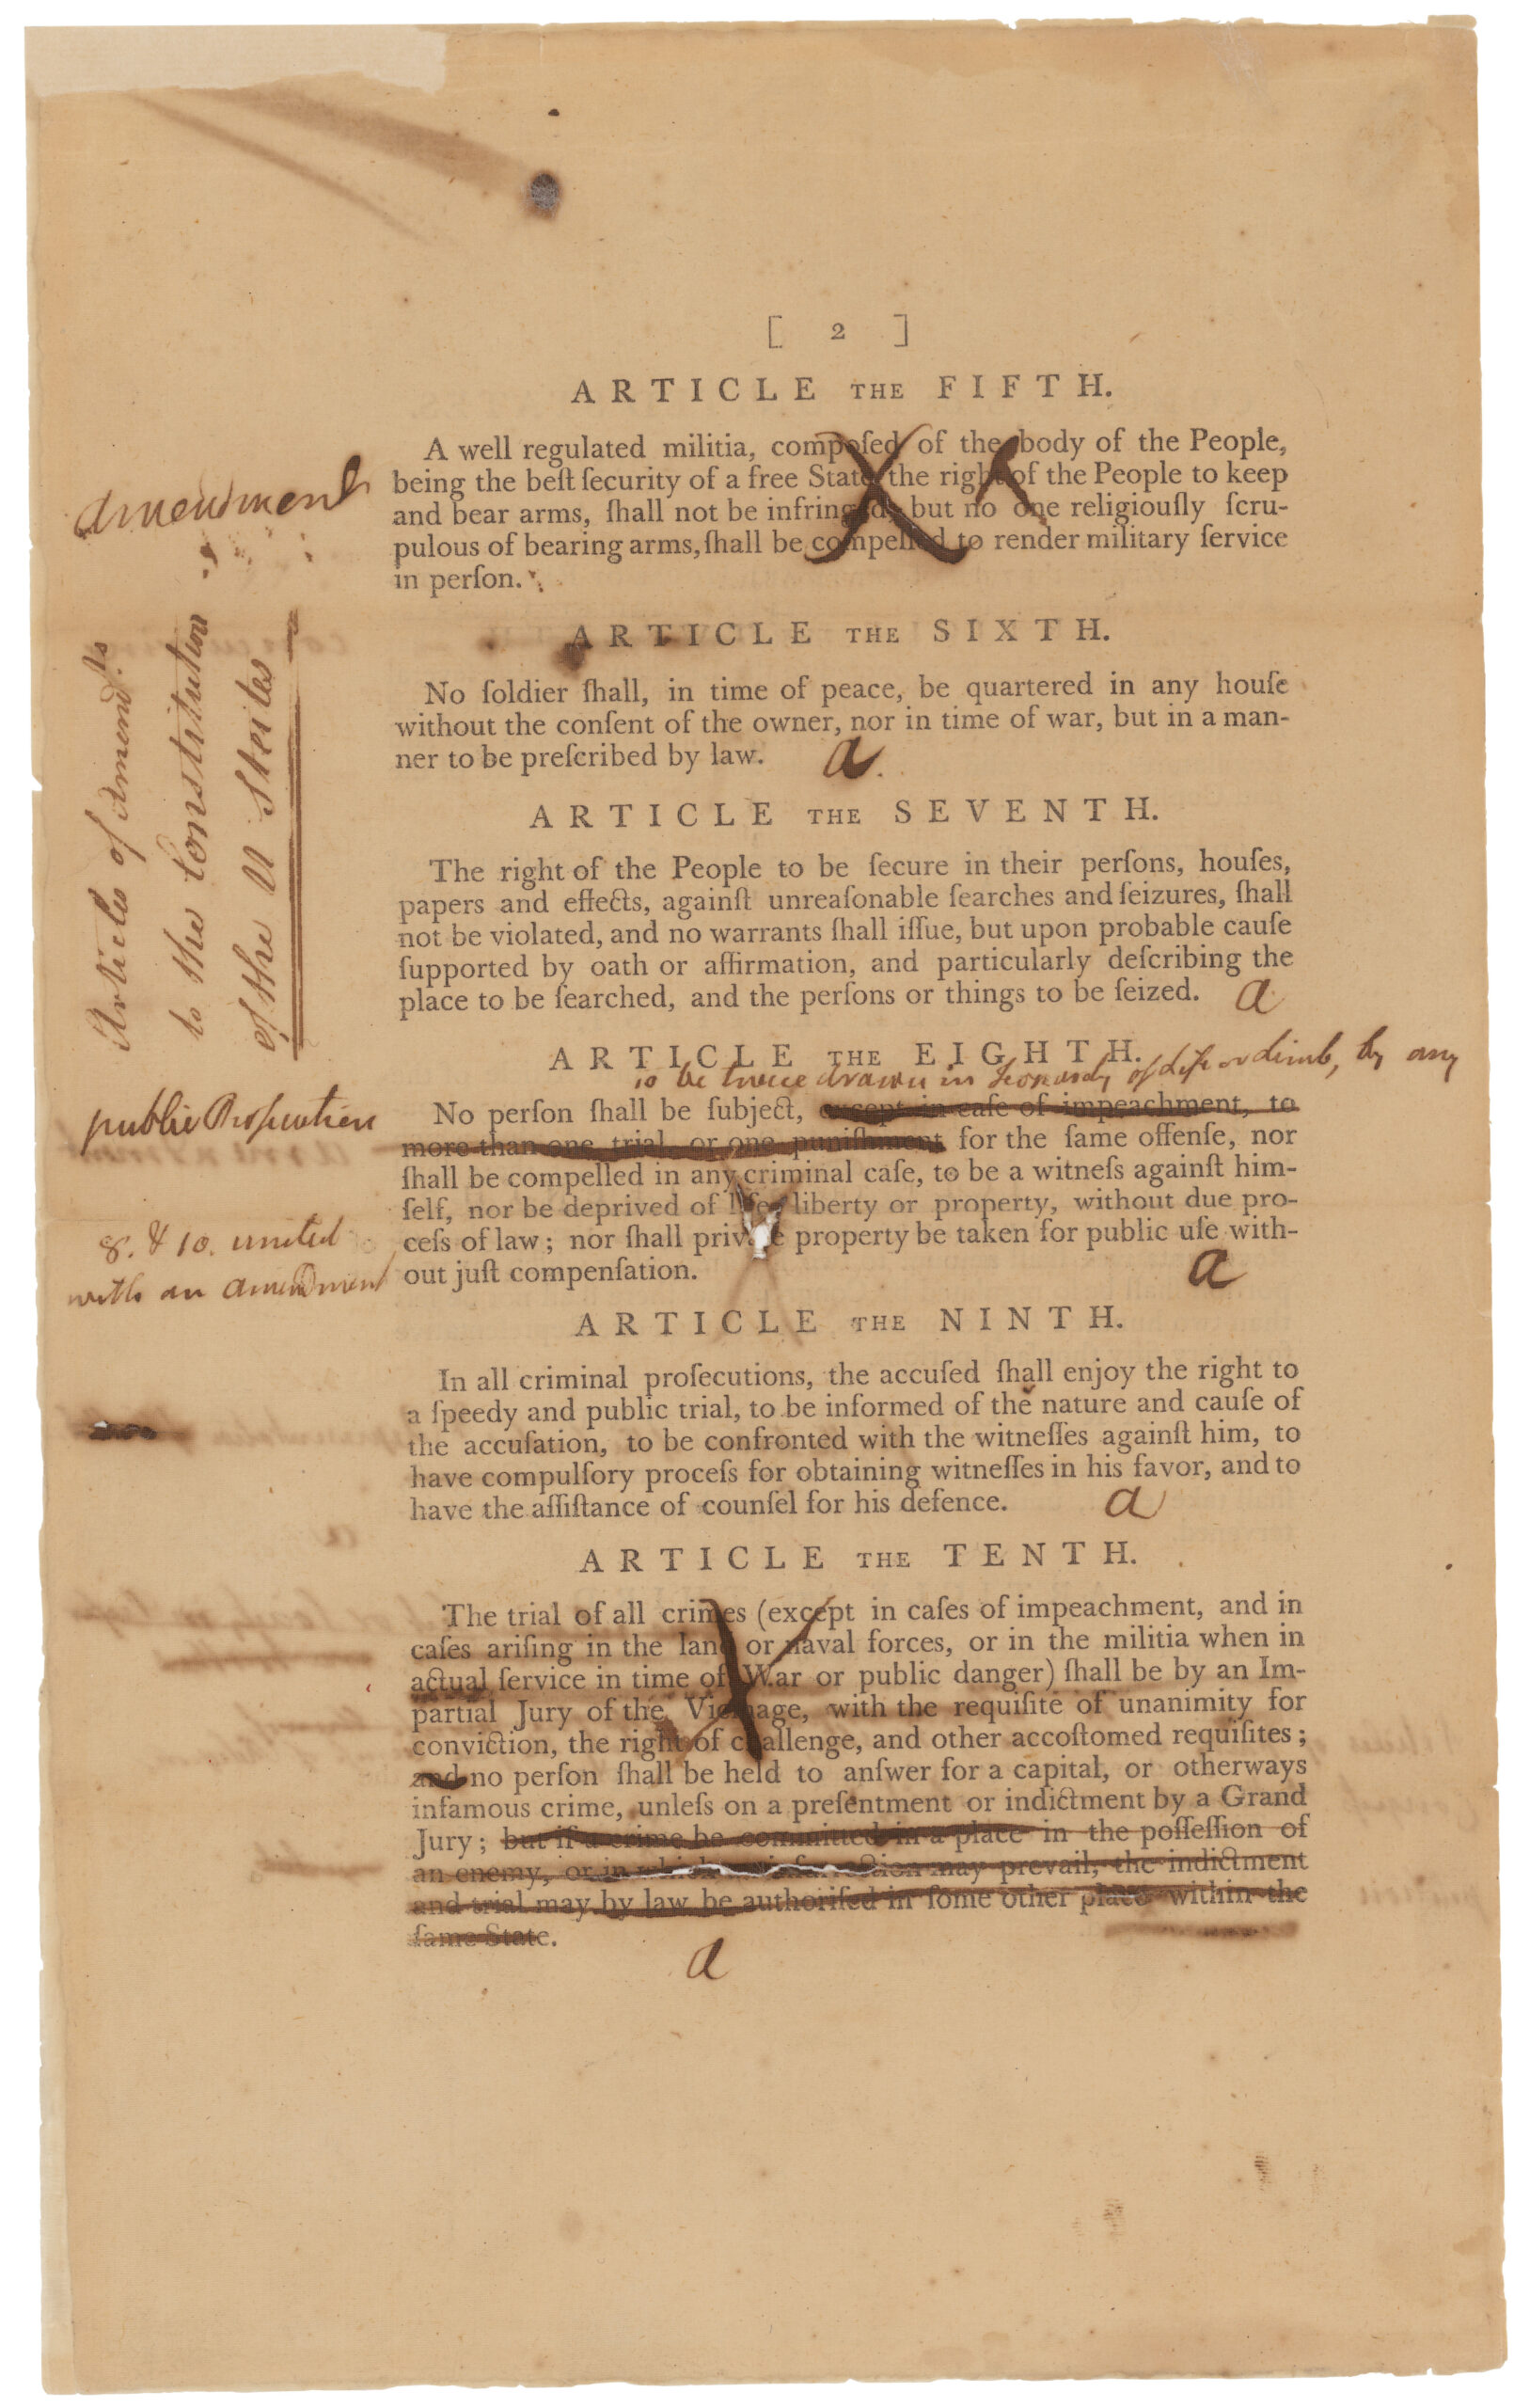 [ 2 ]
ARTICLE THE FIFTH.
A well regulated militia, compoſed of the body of the People,
being the beſt ſecurity of a free State, the right of the People to keep
and bear arms, ſhall not be infringed, but no one religiouſly ſcru-
pulous of bearing arms, ſhall be compelled to render military ſervice
in perſon.
amendment
Articles of Amend.ts
to the Constitution
of the U States
ARTICLE THE SIXTH.
No ſoldier ſhall, in time of peace, be quartered in any houſe
without the conſent of the owner, nor in time of war, but in a man-
ner to be preſcribed by law. a.
ARTICLE THE SEVENTH.
The right of the People to be ſecure in their perſons, houſes,
papers and effects, againſt unreaſonable ſearches and ſeizures, ſhall
not be violated, and no warrants ſhall iſſue, but upon probable cauſe
ſupported by oath or affirmation, and particularly deſcribing the
place to be ſearched, and the perſons or things to be ſeized. a
ARTICLE THE EIGHTH.
to be twice drawn in Jeopardy of life or limb, by any
public Prosecution
No perſon ſhall be ſubject, except in caſe of impeachment, to
more than one trial, or one puniſhment for the ſame offenſe, nor
ſhall be compelled in any criminal caſe, to be a witneſs againſt him-
ſelf, nor be deprived of life, liberty or property, without due pro-
ceſs of law; nor ſhall private property be taken for public uſe with-
out juſt compenſation. a
8. & 10. united
with an amendment
ARTICLE THE NINTH.
In all criminal proſecutions, the accuſed ſhall enjoy the right to
a ſpeedy and public trial, to be informed of the nature and cauſe of
the accuſation, to be confronted with the witneſſes againſt him, to
have compulſory proceſs for obtaining witneſſes in his favor, and to
have the aſſiſtance of counſel for his defence. a
ARTICLE THE TENTH.
The trial of all crimes (except in caſes of impeachment, and in
caſes ariſing in the land or naval forces, or in the militia when in
actual ſervice in time of War or public danger) ſhall be by an Im-
partial Jury of the Vicinage, with the requiſite of unanimity for
conviction, the right of challenge, and other accoſtomed requiſites;
and no perſon ſhall be held to anſwer for a capital, or otherways
infamous crime, unleſs on a preſentment or indictment by a Grand
Jury; but if a crime be committed in a place in the poſſeſſion of
an enemy, or in which an inſurrection may prevail, the indictment
and trial may by law be authoriſed in ſome other place within the
ſame State.
a